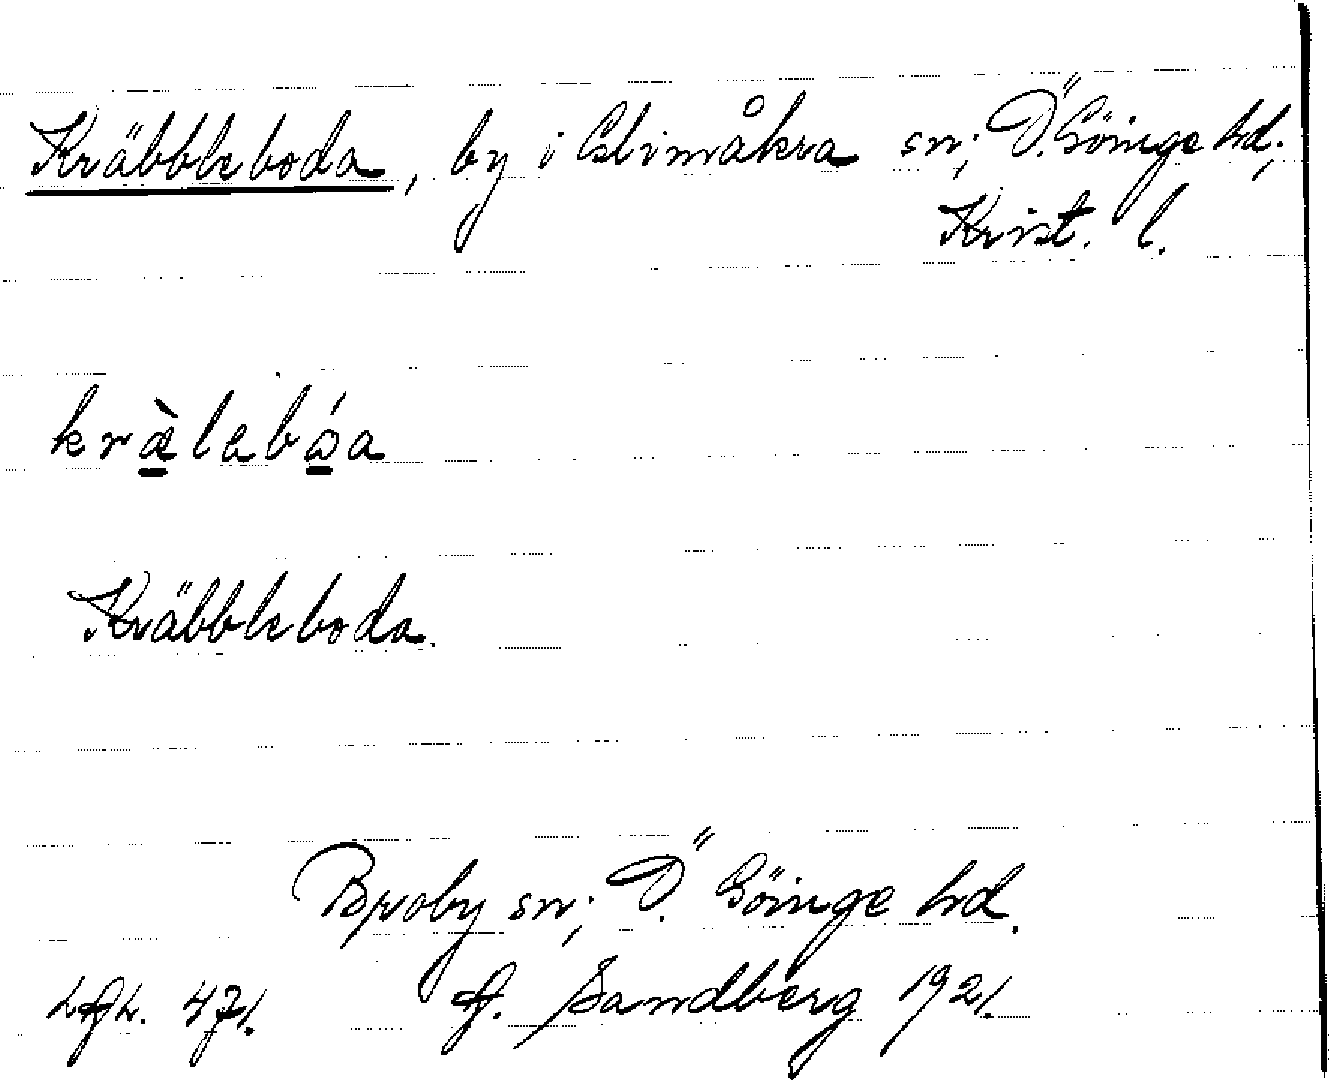 Kräbbleboda, by i Glimåkra sn; Ö. Göinge hd;
Krist. l.
kræ̀lebóa
Kräbbleboda.
Broby sn; Ö. Göinge hd.
471. Sandberg 1921.